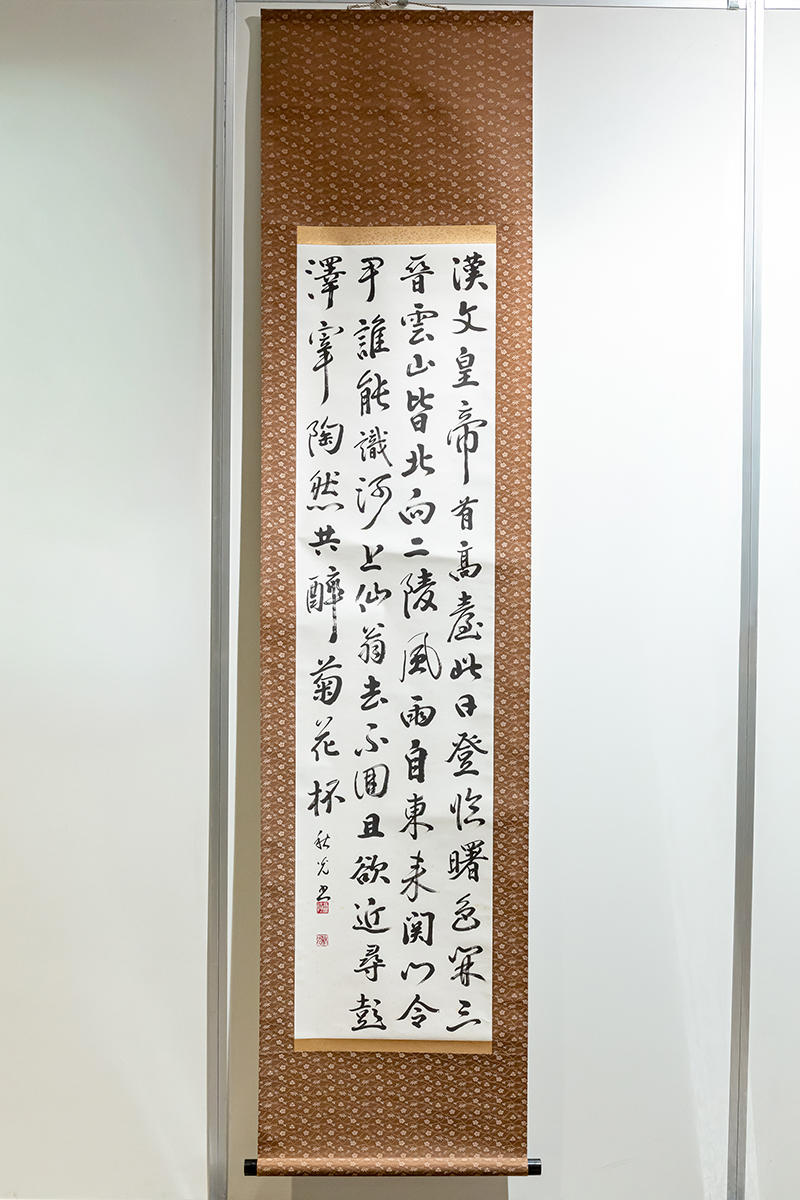 漢文皇帝有高臺此日登臨曙色開三
晉雲山皆北向二陵風雨自東来関門令
尹誰能識河上仙翁去不囬且欲近尋彭
澤宰陶然共醉菊花杯
秋光书